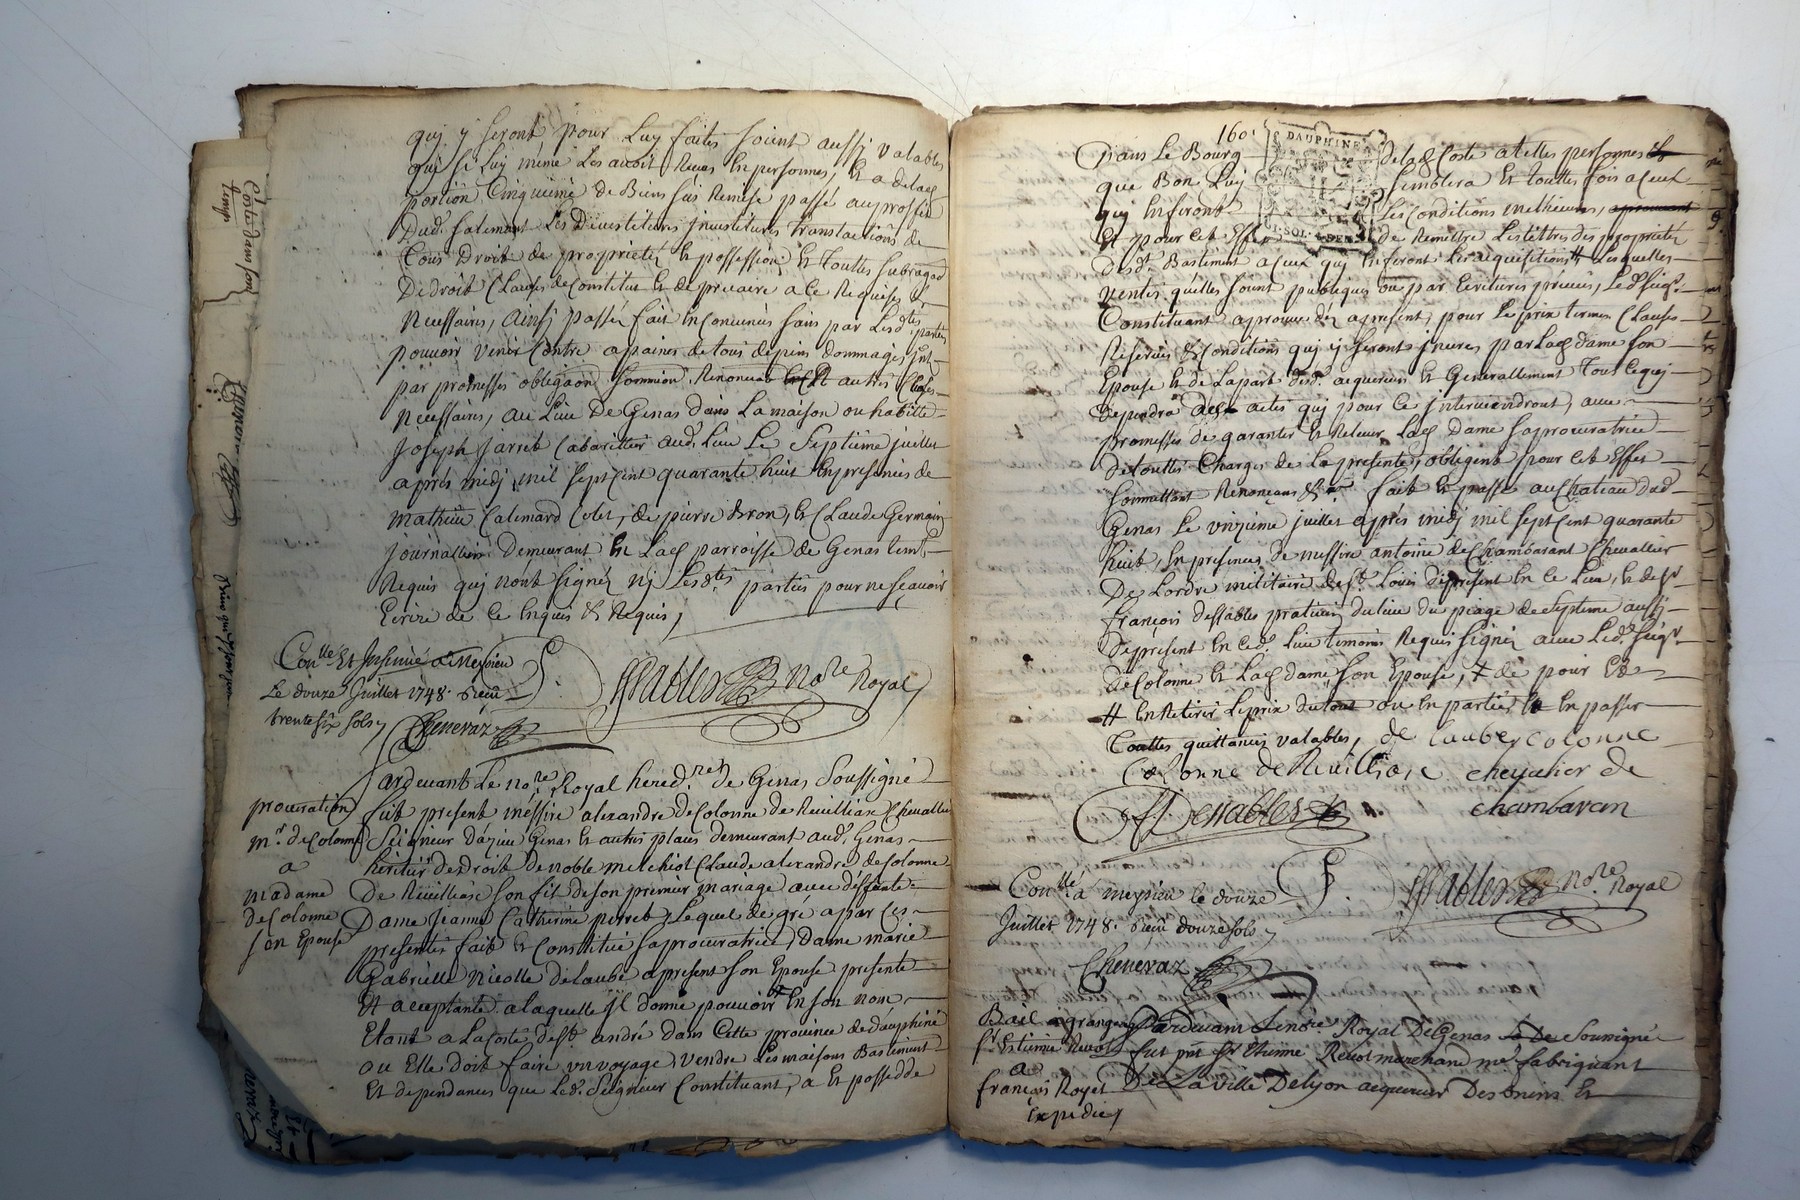 quj y seront pour Luy faites soient aussj valables
que si Luy même Les avoit Reçus En personnes, Et a delad.
portion Cinquieme de Biens sus Remise passé auproffit
Dud. salemant Les Devestitures jnvestitures translations de
Tous Droit de proprieté Et possession Et Touttes subrogaõn
De droit Clauses de Constitut Et de precaire a ce Requises &
Necessaires, Ainsj passé fait En Convenües sans par Lesd. parties
pouvoir venir Contre a paines de tous depens dommages jnt.
par promesses obligaõn soumion Renonciaõ Et autres Clauses
Necessaires, au Lieu De Genas dans La maison ou habitte
Joseph Jarret Cabarittier aud. Lieu Le Septieme juillet
après midj mil sept Cent quarante huit En presences de
Mathieu Calemard Colet, de pierre Bron, Et Claude Germain
journalliers Demeurant En Lad. parroisse de Genas tem.
Requis quj n'ont signéz nj Lesd. parties pour ne sçavoir
Ecrire de ce Enquis & Requis,
Con.lle Et Insinué a Meyzieu
Le douze Juillet 1748. Reçu
trente six sols
Chenevaz
DesSables no.re Royal
procuration
m.r de Colonne
a
Madame
de Colonne
son Epouse
Pardevant Le no.re Royal hered.re de Genas Soussigné
fut present méssire alexandre de Colonne de Reuilliase Chevallier
Seigneur D'azieu Genas Et autres places demeurant aud. Genas
heritier de droit de noble melchiot Claude alexandre de Colonne
De Reuilliase son fils de son premier mariage avec deffunte
Dame Jeanne Catherine perret, Lequel de gré a par Ces
presentes fait Et Constitué sa procuratrice, Dame marie
Gabrielle Nicolle de Laube a present son Epouse presente
Et aceptante a laquelle jl donne pouvoir En son nom
Etant a La Coste de S.t andré dans Cette province de dauphiné
ou Elle doit faire un voyage, vendre Les maisons Bastiment
Et dependances que Led. Seigneur Constituant, a Et possedde
160.
DAUPHINE
SOL. 4 DEN.
Dans Le Bourg delad. Coste a telles personnes
que Bon Luy semblera Et touttes fois a Ceux
quj En feront Les Conditions meilleures,
Et pour Cet Effet de Remettre Les tittres des proprietéz
desd. Bastiment a Ceux quj En feront Les acquisitions # Lesquelles
ventes qu'elles soient publiques ou par Ecritures privées, Led. Seig.r
Constituant aprouve dez apresent, pour Le prix termes Clauses
Reserves & Conditions quj y seront jnserées par Lad. dame son
Epouse Et de La part desd. acquereurs Et Generallement Tout Ce quj
dependra des actes quj pour Ce Interviendront, avec
promesses de garantir Et Relever Lad. Dame sa procuratrice
de touttes Charges de La presente, obligent pour Cet Effet
soumettant Renonçans &.a fait Et passé au Chateau dud.
Genas Le onzieme juillet après midj mil sept Cent quarante
huit, En presences de messire antoine de Chambarant Chevallier
De Lordre militaire de S.t Louis de present En ce Lieu, Et de s.r
françois dessables praticien du lieu du peage de Septeme aussj
de present En Ced. Lieu temoins Requis signéz avec Led. Seig.r
de Colonne Et Lad. dame son Epouse,
# En Retirer Le prix du tout ou En parties En passer
Touttes quittances valables, de Laube Colonne
Colonne de Reuilliase chevalier de
chambaran
Dessables
Con.lle a meyzieu le douze
Juillet 1748. Reçu douze sols
Chenevaz
DesSables no.re Royal
Bail a grangeage
s.r Estienne Revol
a
françois Royet
Expediez
Pardevant Le no.re Royal De Genas Soussigné
fut p.nt s.r Etienne Revol marchand m.e fabriquant
De La ville De Lyon acquereur Des Biens Et